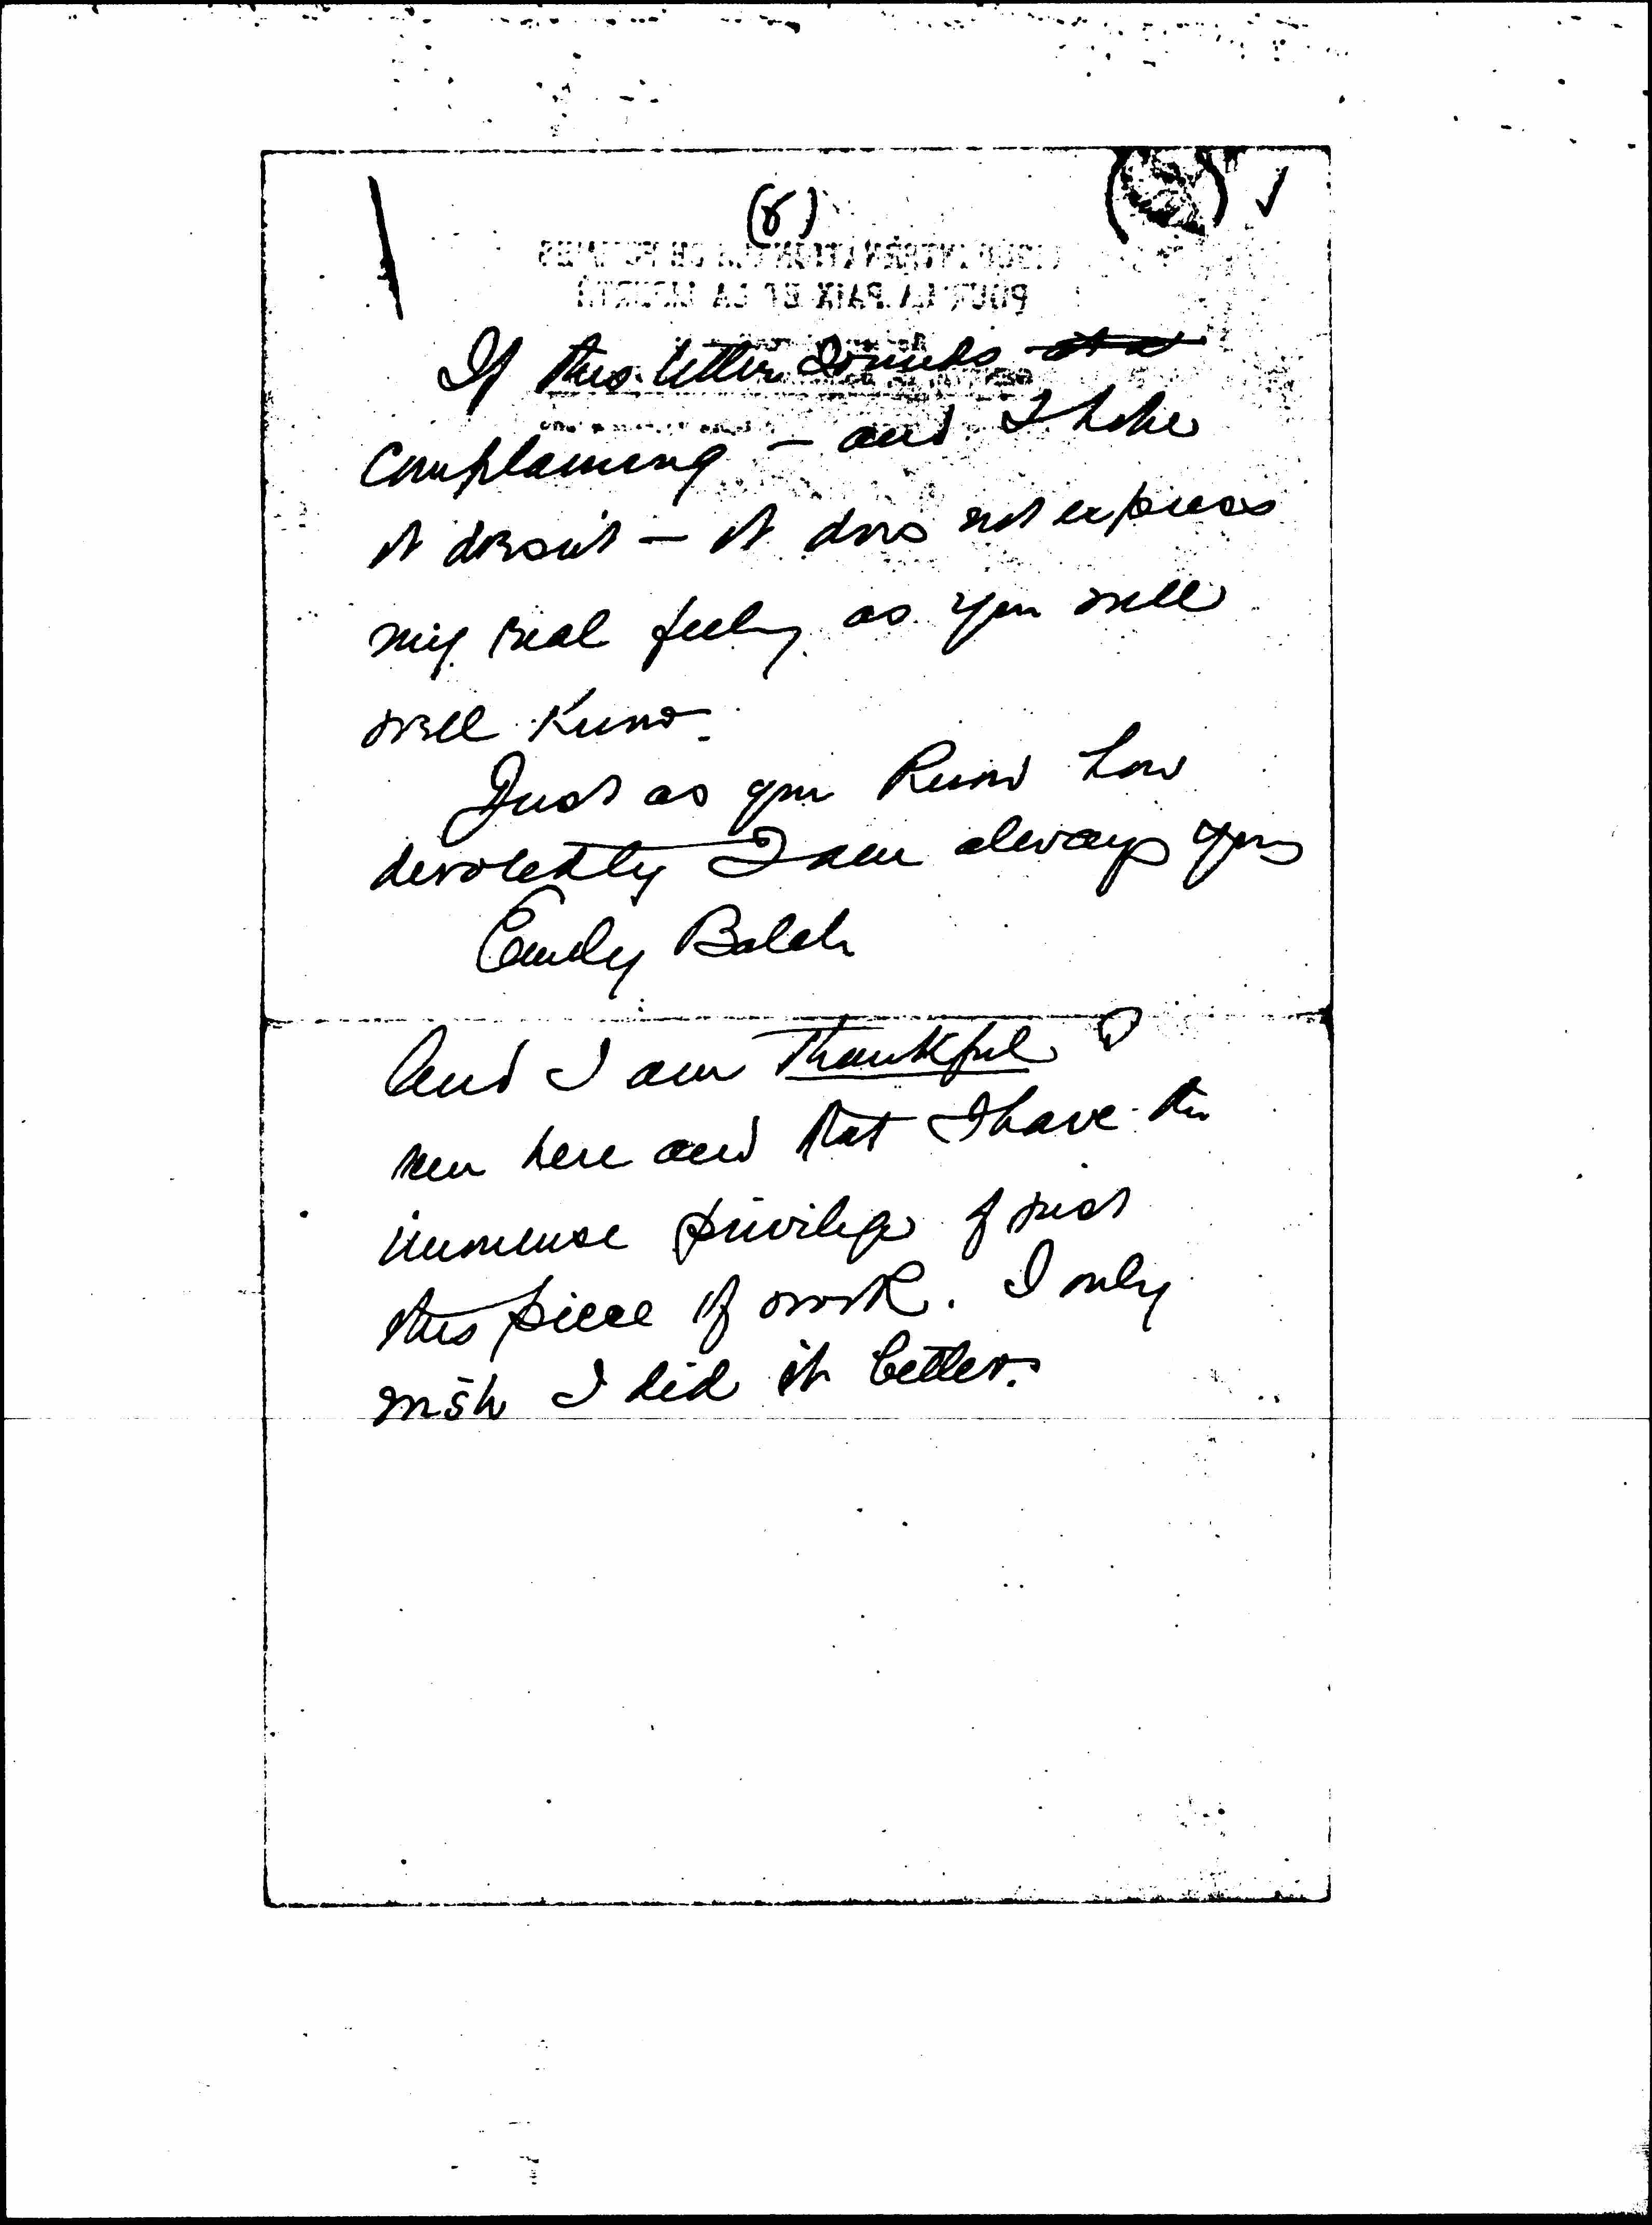 (8)
If this letter sounds
complaining – and I hope
it doesn't – it does not express
my real feeling as you well
well know.
Just as you know how
devotedly I am always yours
Emily Balch
And I am thankful I
am here and that I have the
immense privilege of just
this piece of work. I only
wish I did it better.